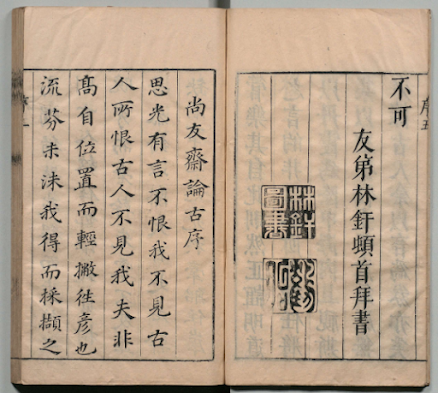 序五
不可
友第林釬頓首拜書
林釬
圖書
尚友齋論古序
思光有言不恨我不見古
人所恨古人不見我夫非
髙自位置而輕撇徃彦也
流芬未沬我得而採擷之